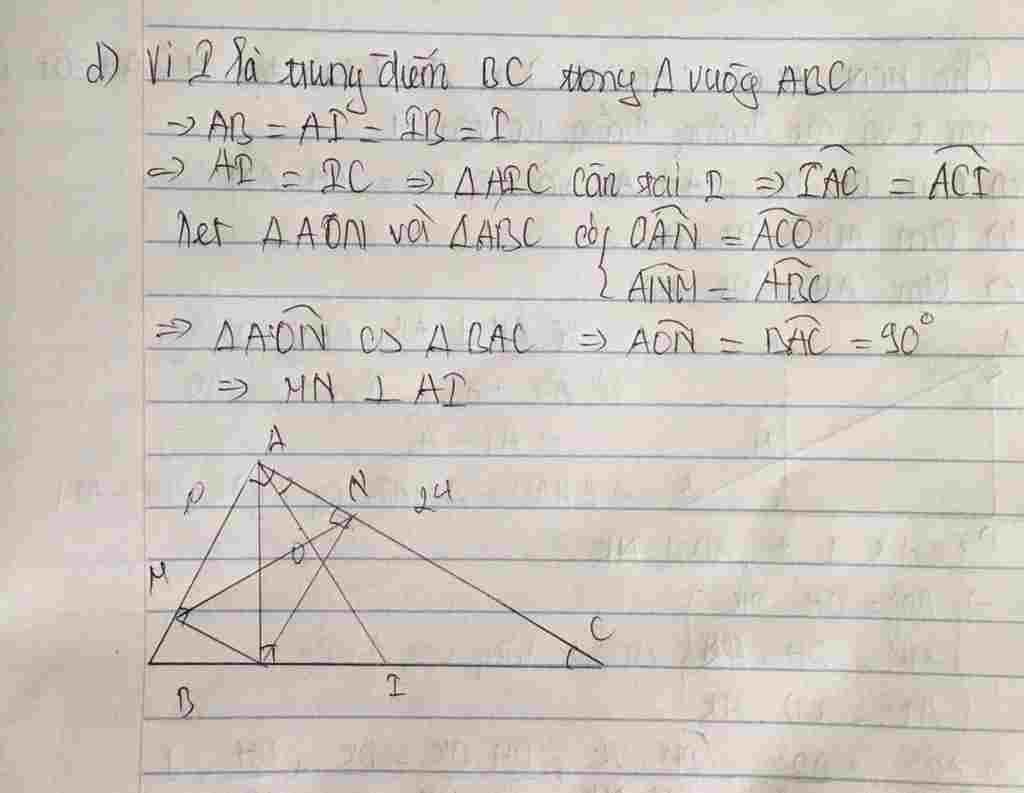 d) Vì I là trung điểm BC trong Δ vuông ABC
→ AB = AI = IB = I
⇒ AI = IC ⇒ ΔAIC cân tại I ⇒ \widehat{IAC} = \widehat{ACI}
Xét ΔAON và ΔABC có { \widehat{OAN} = \widehat{ACO}
\widehat{ANM} = \widehat{ABC}
⇒ ΔAON ∽ ΔBAC ⇒ \widehat{AON} = \widehat{BAC} = 90°
⇒ MN ⊥ AI
A
N
24
O
M
C
B
I